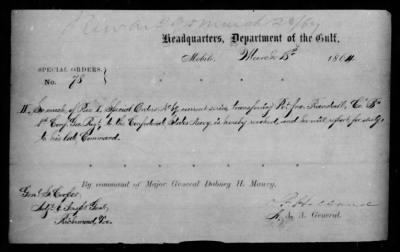 Headquarters, Department of the Gulf,
Mobile, March 15th 1864.
SPECIAL ORDERS,
No. 75
II. So much of Par. I, Special Orders No 67 current series, transferring Pvt Jno. Randall, Co "B"
1st Conf. Geo. Regt, to the Confederate States Navy, is hereby revoked, and he will report for duty
to his late Command.
By command of Major General Dabney H. Maury.
Genl. S. Cooper
Adjt & Inspr Genl,
Richmond, Va.
A. A. General.